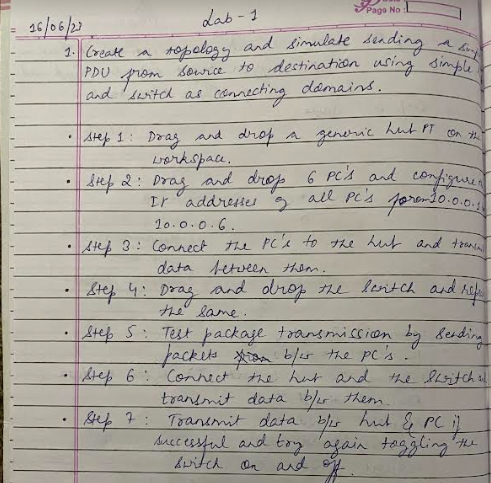 Page No:
16/06/23
Lab - 1
1. Create a topology and simulate sending a
PDU from source to destination using simple
and switch as connecting domains.
• Step 1: Drag and drop a generic hub PT on the
workspace.
• Step 2: Drag and drop 6 PC's and configure
IP addresses of all PC's from 10.0.0.1
10.0.0.6.
• Step 3: Connect the PC's to the hub and
data between them.
• Step 4: Drag and drop the switch and
the same.
• Step 5: Test package transmission by sending
packets b/w the PC's.
• Step 6: Connect the hub and the switch
transmit data b/w them.
• Step 7: Transmit data b/w hub & PC if
successful and try again toggling the
switch on and off.